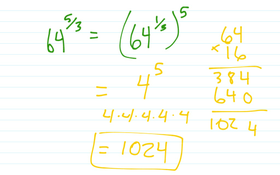 64^{5/3} = (64^{1/3})^5
= 4^5
4·4·4·4·4
= 1024
64
× 16
384
640
1024